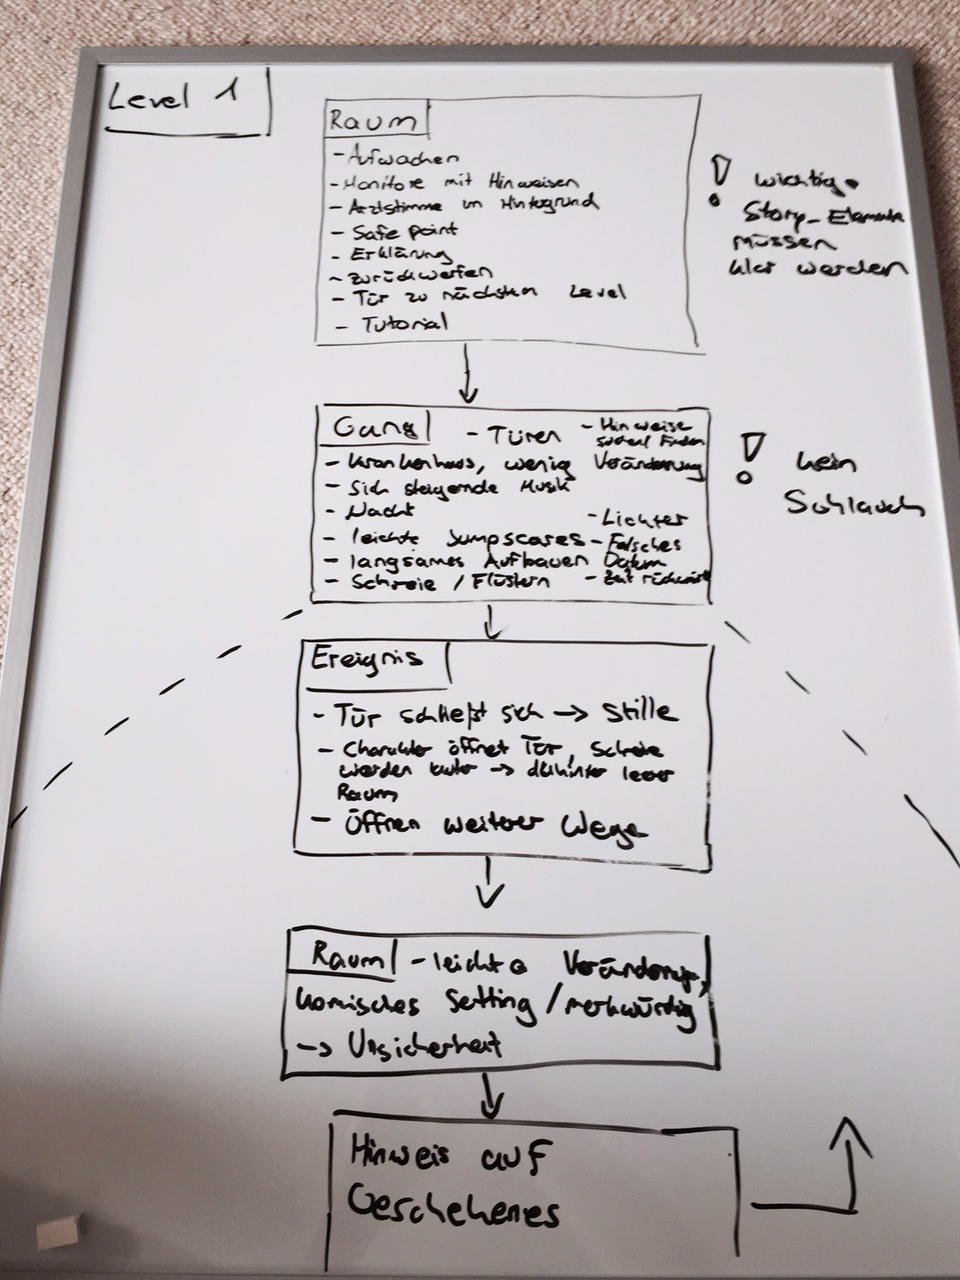 Level 1
Raum
- Aufwachen
- Monitore mit Hinweisen
- Arztstimme im Hintergrund
- Safe point
- Erklärung
- zurückwerfen
- Tür zu nächsten Level
- Tutorial
! wichtige
Story-Elemente
müssen
klar werden
Gang
- Türen
- Hinweise
sofort finden
- Krankenhaus, wenig Veränderung
- Sich steigernde Musik
- Nacht
- leichte Jumpscares
- langsames Aufbauen
- Schreie / Flüstern
- Lichter
- Falsches
Datum
- Zeit rückwärts
! kein
Schlauch
Ereignis
- Tür schließt sich → Stille
- Charakter öffnet Tür, Schreie
werden lauter → dahinter leerer
Raum
- Öffnen weiterer Wege
Raum
- leichte Veränderung,
komisches Setting / merkwürdig
→ Unsicherheit
Hinweis auf
Geschehenes